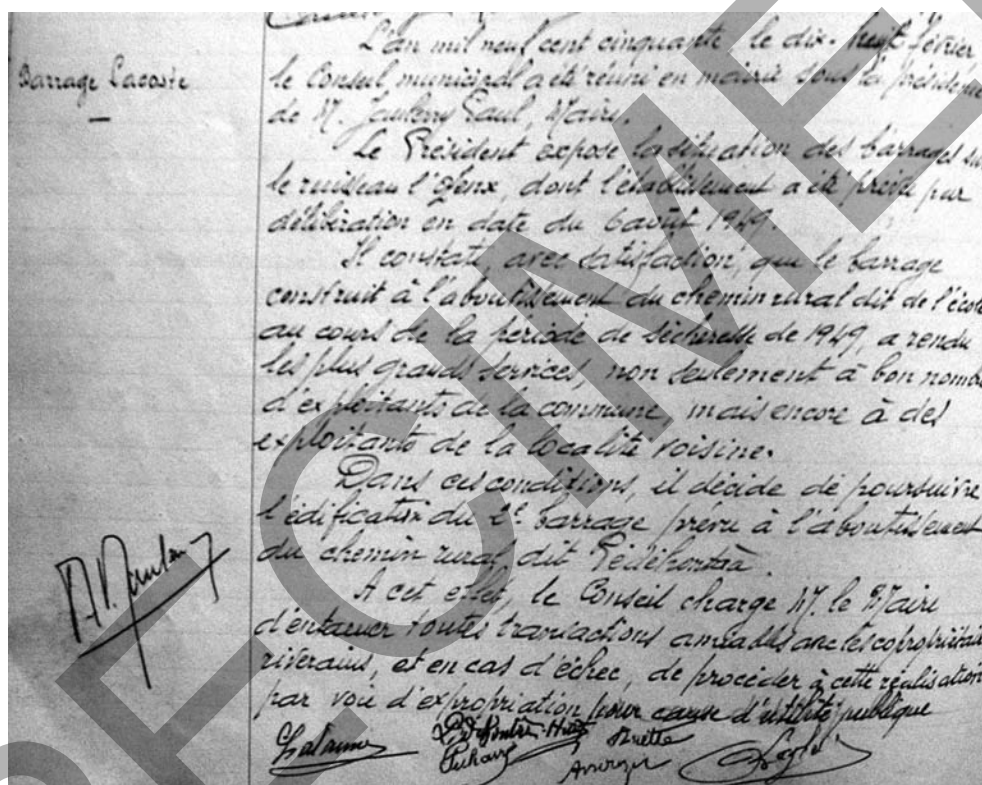 Barrage Lacoste
L'an mil neuf cent cinquante le dix-huit février,
le Conseil municipal a été réuni en mairie sous la présidence
de M. Paul, Maire.
Le Président expose la situation des barrages sur
le ruisseau dont l'établissement a été prévu par
délibération en date du 6 août 1949.
Il constate, avec satisfaction, que le barrage
construit à l'aboutissement du chemin rural dit de l'école
au cours de la période de sécheresse de 1949, a rendu
les plus grands services, non seulement à bon nombre
d'exploitants de la commune, mais encore à des
exploitants de la localité voisine.
Dans ces conditions, il décide de poursuivre
l'édification du 2e barrage prévu à l'aboutissement
du chemin rural, dit
A cet effet, le Conseil charge M. le Maire
d'entamer toutes transactions amiables avec les copropriétaires
riverains, et en cas d'échec, de procéder à cette réalisation
par voie d'expropriation pour cause d'utilité publique
SPECIMEN